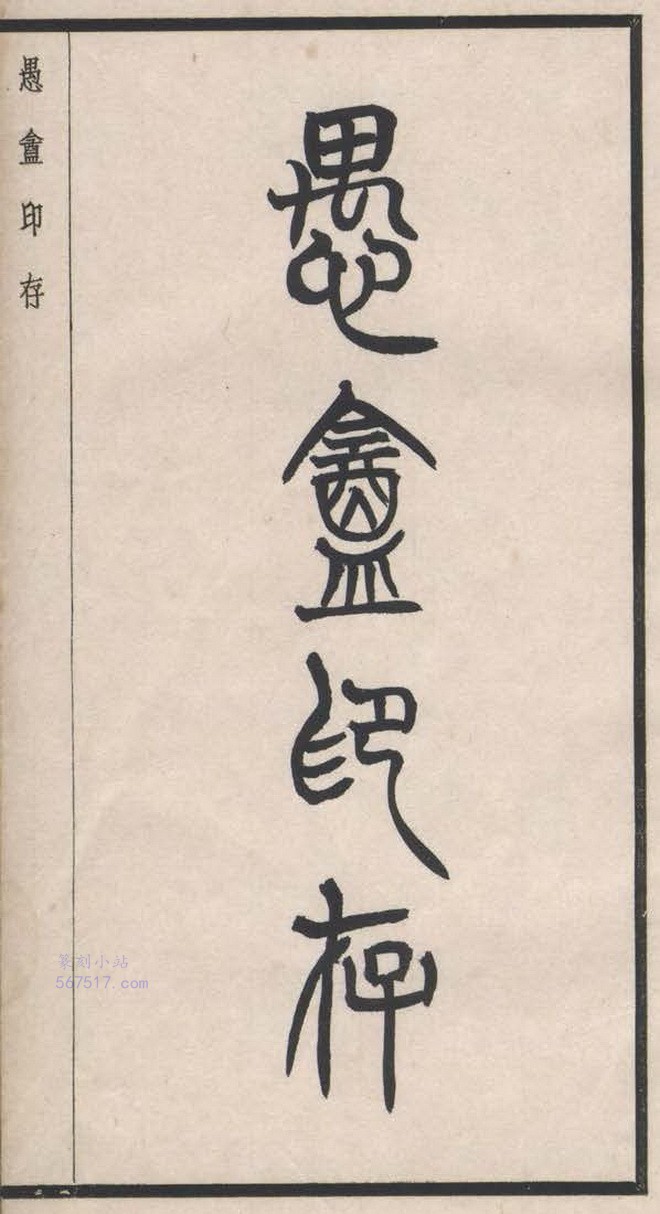 愚盦印存
愚盦印存
篆刻小站
567517.com